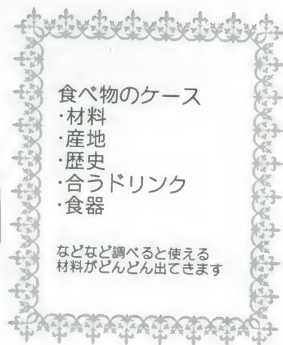 食べ物のケース
・材料
・産地
・歴史
・合うドリンク
・食器
などなど調べると使える
材料がどんどん出てきます